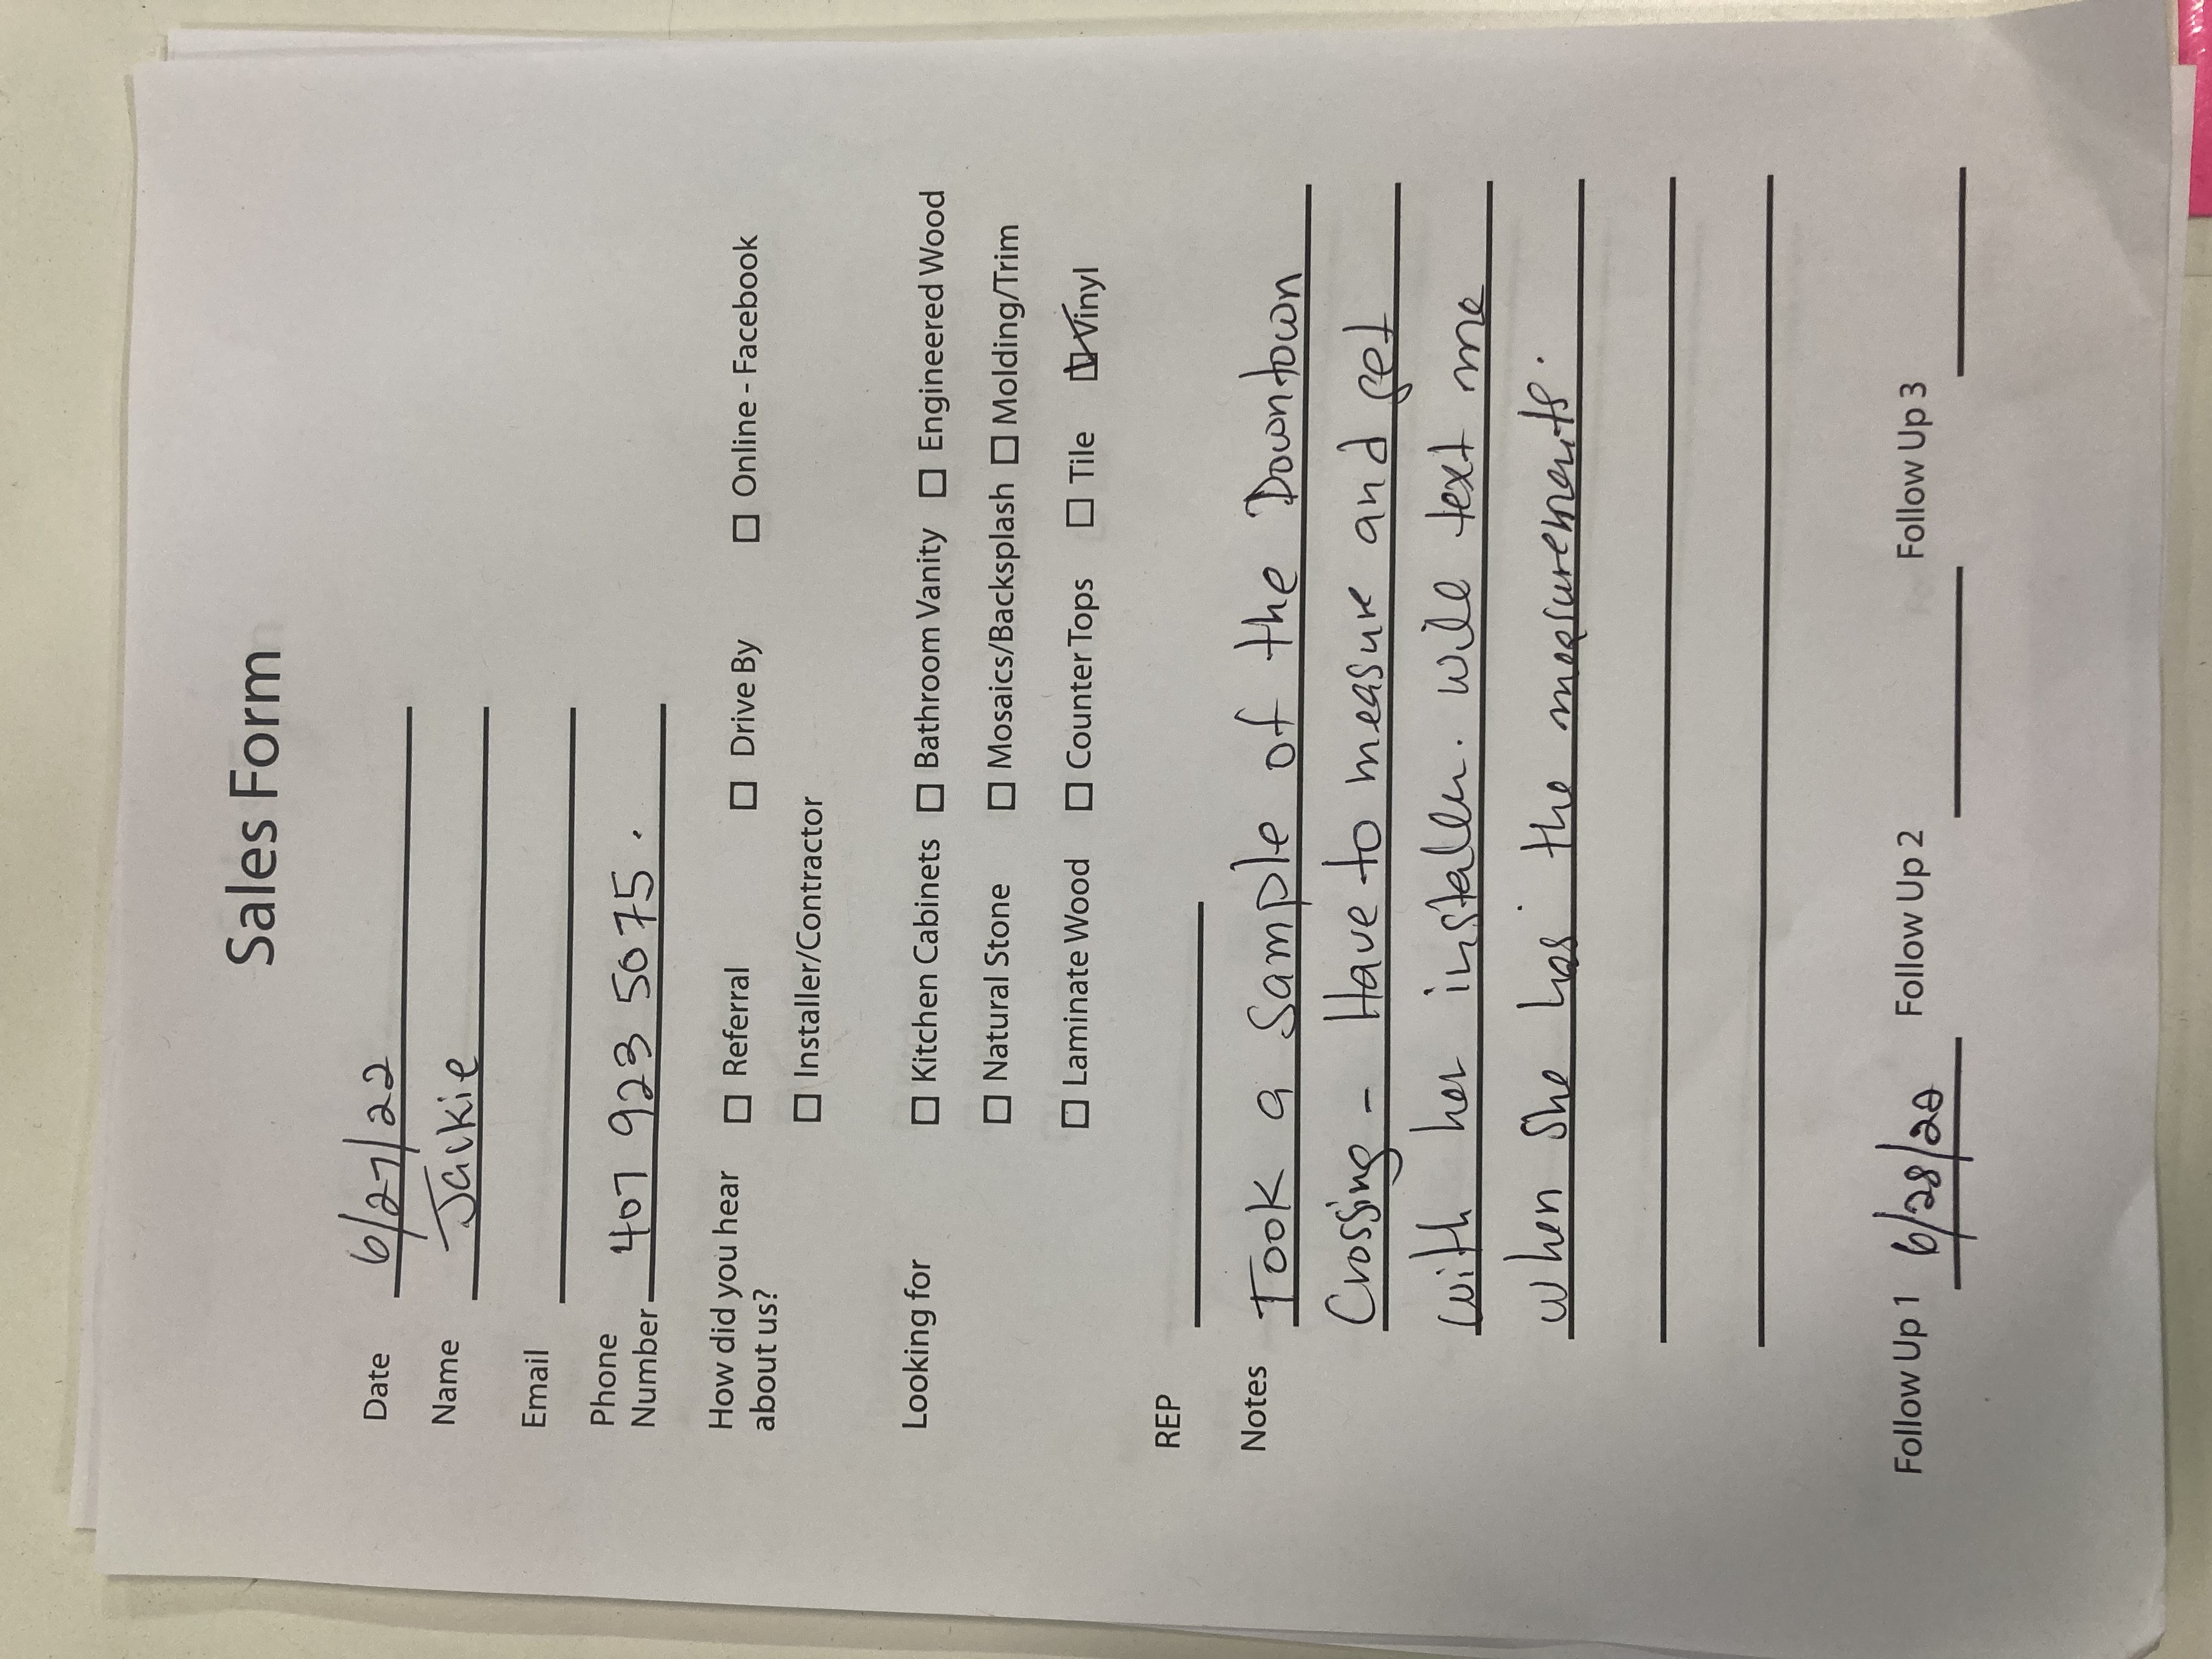 Sales Form
Date 6/27/22
Name Jackie
Email
Phone
Number 407 923 5075.
How did you hear ☐ Referral ☐ Drive By ☐ Online - Facebook
about us? ☐ Installer/Contractor
Looking for ☐ Kitchen Cabinets ☐ Bathroom Vanity ☐ Engineered Wood
☐ Natural Stone ☐ Mosaics/Backsplash ☐ Molding/Trim
☐ Laminate Wood ☐ Counter Tops ☐ Tile ☑ Vinyl
REP
Notes Took a Sample of the Downtown
Crossing - Have to measure and get
with her installer. will text me
when she has the measurements.
Follow Up 1 6/28/22 Follow Up 2 Follow Up 3